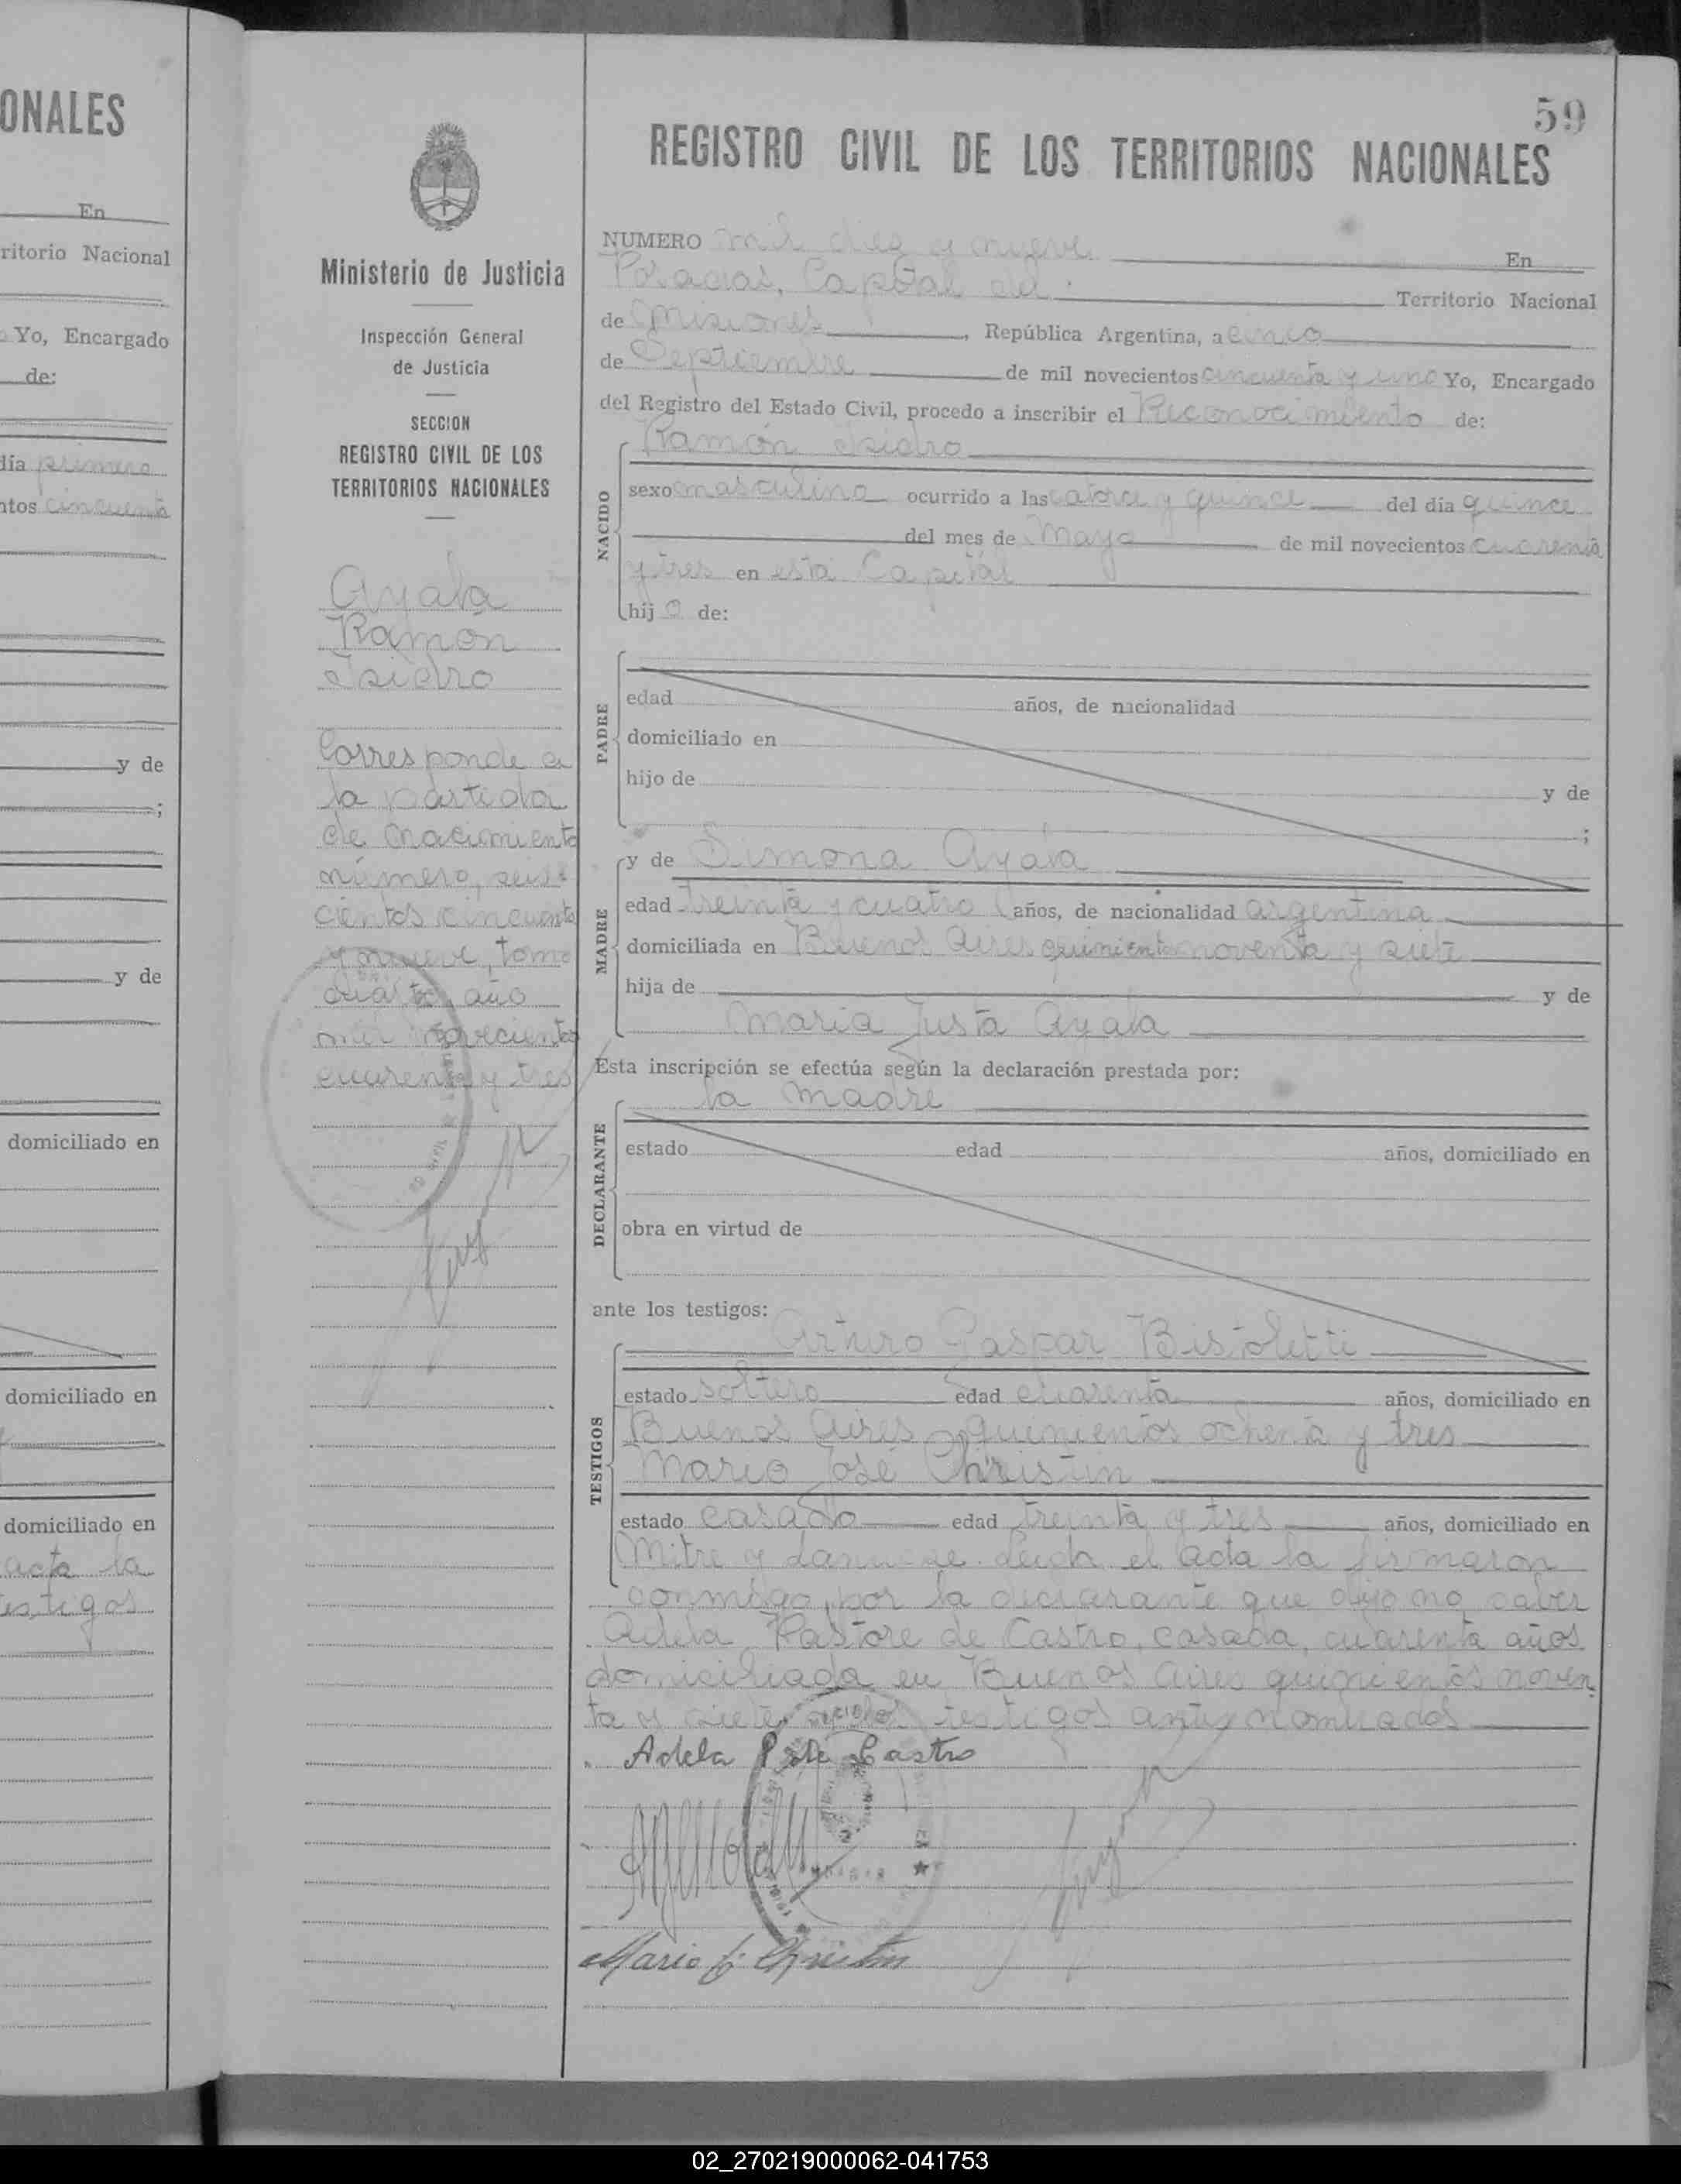 ONALES
En
ritorio Nacional
Yo, Encargado
de:
día primero
ntos cincuenta
y de
;
y de
domiciliado en
domiciliado en
domiciliado en
acta la
testigos
Ministerio de Justicia
Inspección General
de Justicia
SECCION
REGISTRO CIVIL DE LOS
TERRITORIOS NACIONALES
Ayala
Ramón
Isidro
Corresponde a
la partida
de nacimiento
número, seis
cientos cincuenta
y nueve, tomo
cuarto, año
mil novecientos
cuarenta y tres
59
REGISTRO CIVIL DE LOS TERRITORIOS NACIONALES
NUMERO mil diez y nueve En
Posadas, Capital del Territorio Nacional
de Misiones, República Argentina, a cinco
de Septiembre de mil novecientos cincuenta y uno Yo, Encargado
del Registro del Estado Civil, procedo a inscribir el Reconocimiento de:
Ramón Isidro
NACIDO
sexo masculino ocurrido a las catorce y quince del día quince
del mes de Mayo de mil novecientos cuarenta
y tres en esta Capital
hijo de:
PADRE
edad años, de nacionalidad
domiciliado en
hijo de y de
;
MADRE
y de Simona Ayala
edad treinta y cuatro años, de nacionalidad argentina
domiciliada en Buenos Aires quinientos noventa y siete
hija de y de
Maria Justa Ayala
Esta inscripción se efectúa según la declaración prestada por:
la madre
DECLARANTE
estado edad años, domiciliado en
obra en virtud de
ante los testigos:
Arturo Gaspar Bistoletti
TESTIGOS
estado soltero edad cuarenta años, domiciliado en
Buenos Aires quinientos ochenta y tres
Mario José Christin
estado casado edad treinta y tres años, domiciliado en
Mitre y Lanusse. Leída el acta la firmaron
conmigo, por la declarante que dijo no saber
Adela Pastore de Castro, casada, cuarenta años
domiciliada en Buenos Aires quinientos noven
ta y siete y los testigos antes nombrados
Adela P. de Castro
Mario J. Christin
02_270219000062-041753